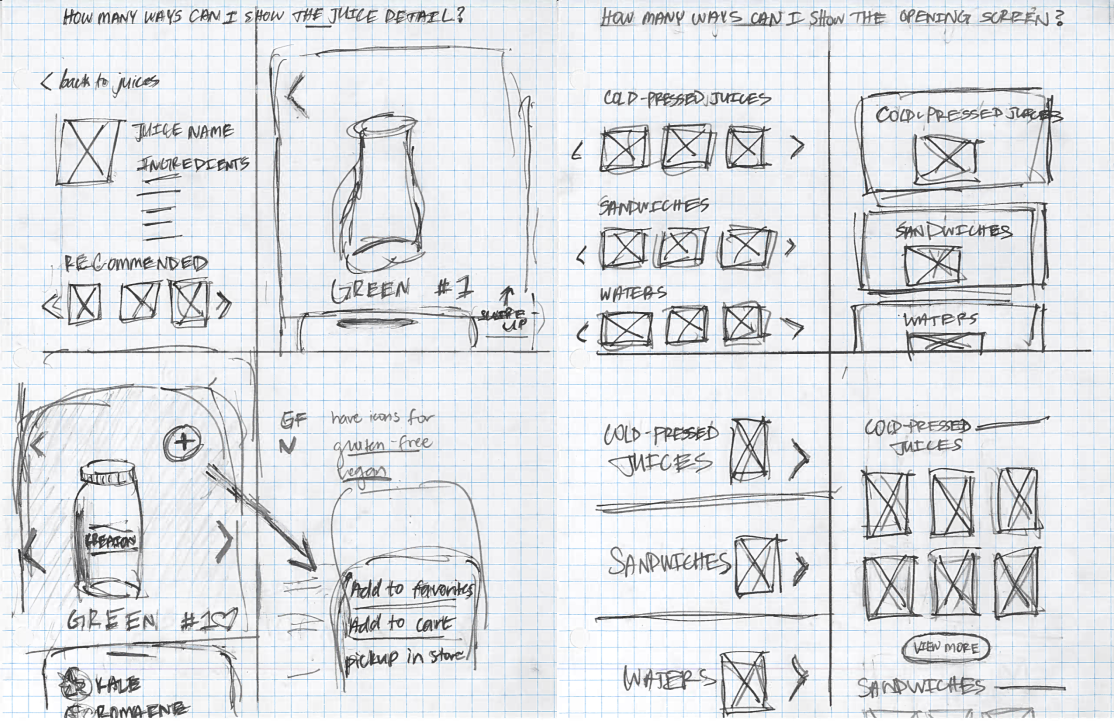 HOW MANY WAYS CAN I SHOW THE JUICE DETAIL?
< back to juices
JUICE NAME
INGREDIENTS
RECOMMENDED
GREEN #1
SWIPE
UP
GREEN #1
KALE
ROMAINE
GF have icons for
V gluten-free
vegan
Add to favorites
Add to cart
pickup in store
HOW MANY WAYS CAN I SHOW THE OPENING SCREEN?
COLD-PRESSED JUICES
SANDWICHES
WATERS
COLD-PRESSED JUICES
SANDWICHES
WATERS
COLD-PRESSED
JUICES
SANDWICHES
WATERS
COLD-PRESSED
JUICES
VIEW MORE
SANDWICHES